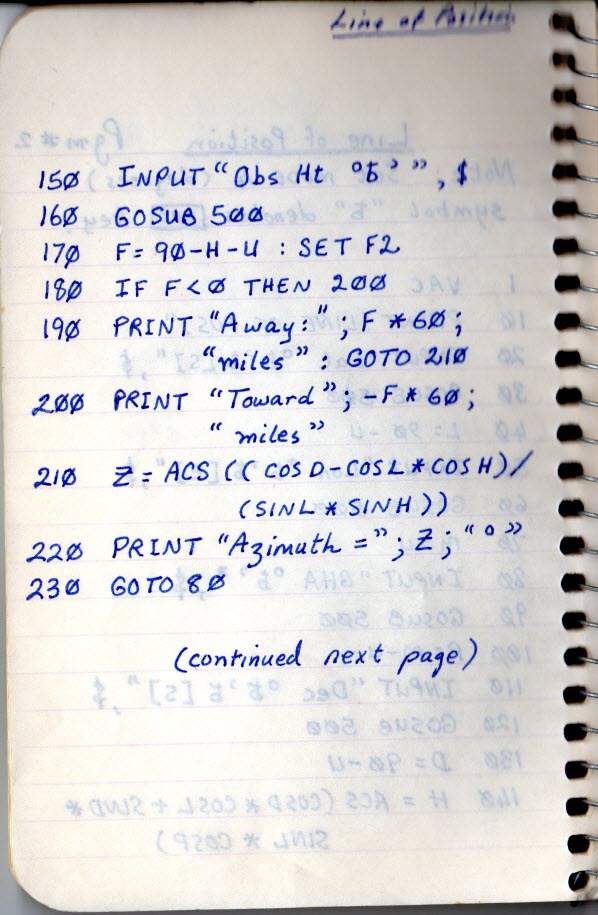 Line of Position
150 INPUT “Obs Ht °Ƃ’”, $
160 GOSUB 500
170 F= 90-H-U : SET F2
180 IF F<0 THEN 200
190 PRINT “Away:”; F*60;
“miles” : GOTO 210
200 PRINT “Toward”; -F*60;
“miles”
210 Z = ACS ((COSD-COSL*COSH)/
(SINL*SINH))
220 PRINT “Azimuth =”; Z; “°”
230 GOTO 80
(continued next page)